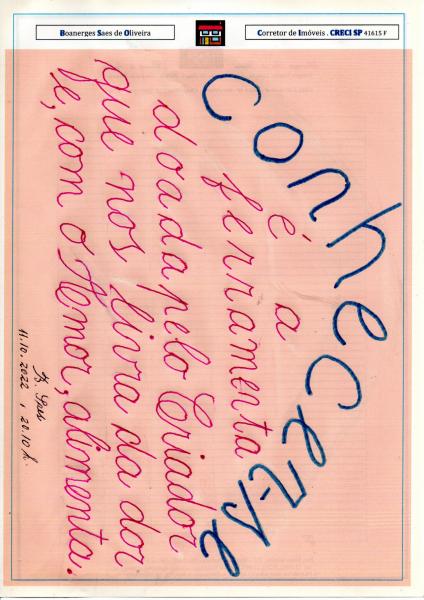 Boanerges Saes de Oliveira
Corretor de Imóveis . CRECI SP 41615 F
Conhecer-se
é
a
ferramenta
doada pelo Criador
que nos livra da dor
e, com o Amor, alimenta.
B. Saes
11.10.2022, 20.10h.